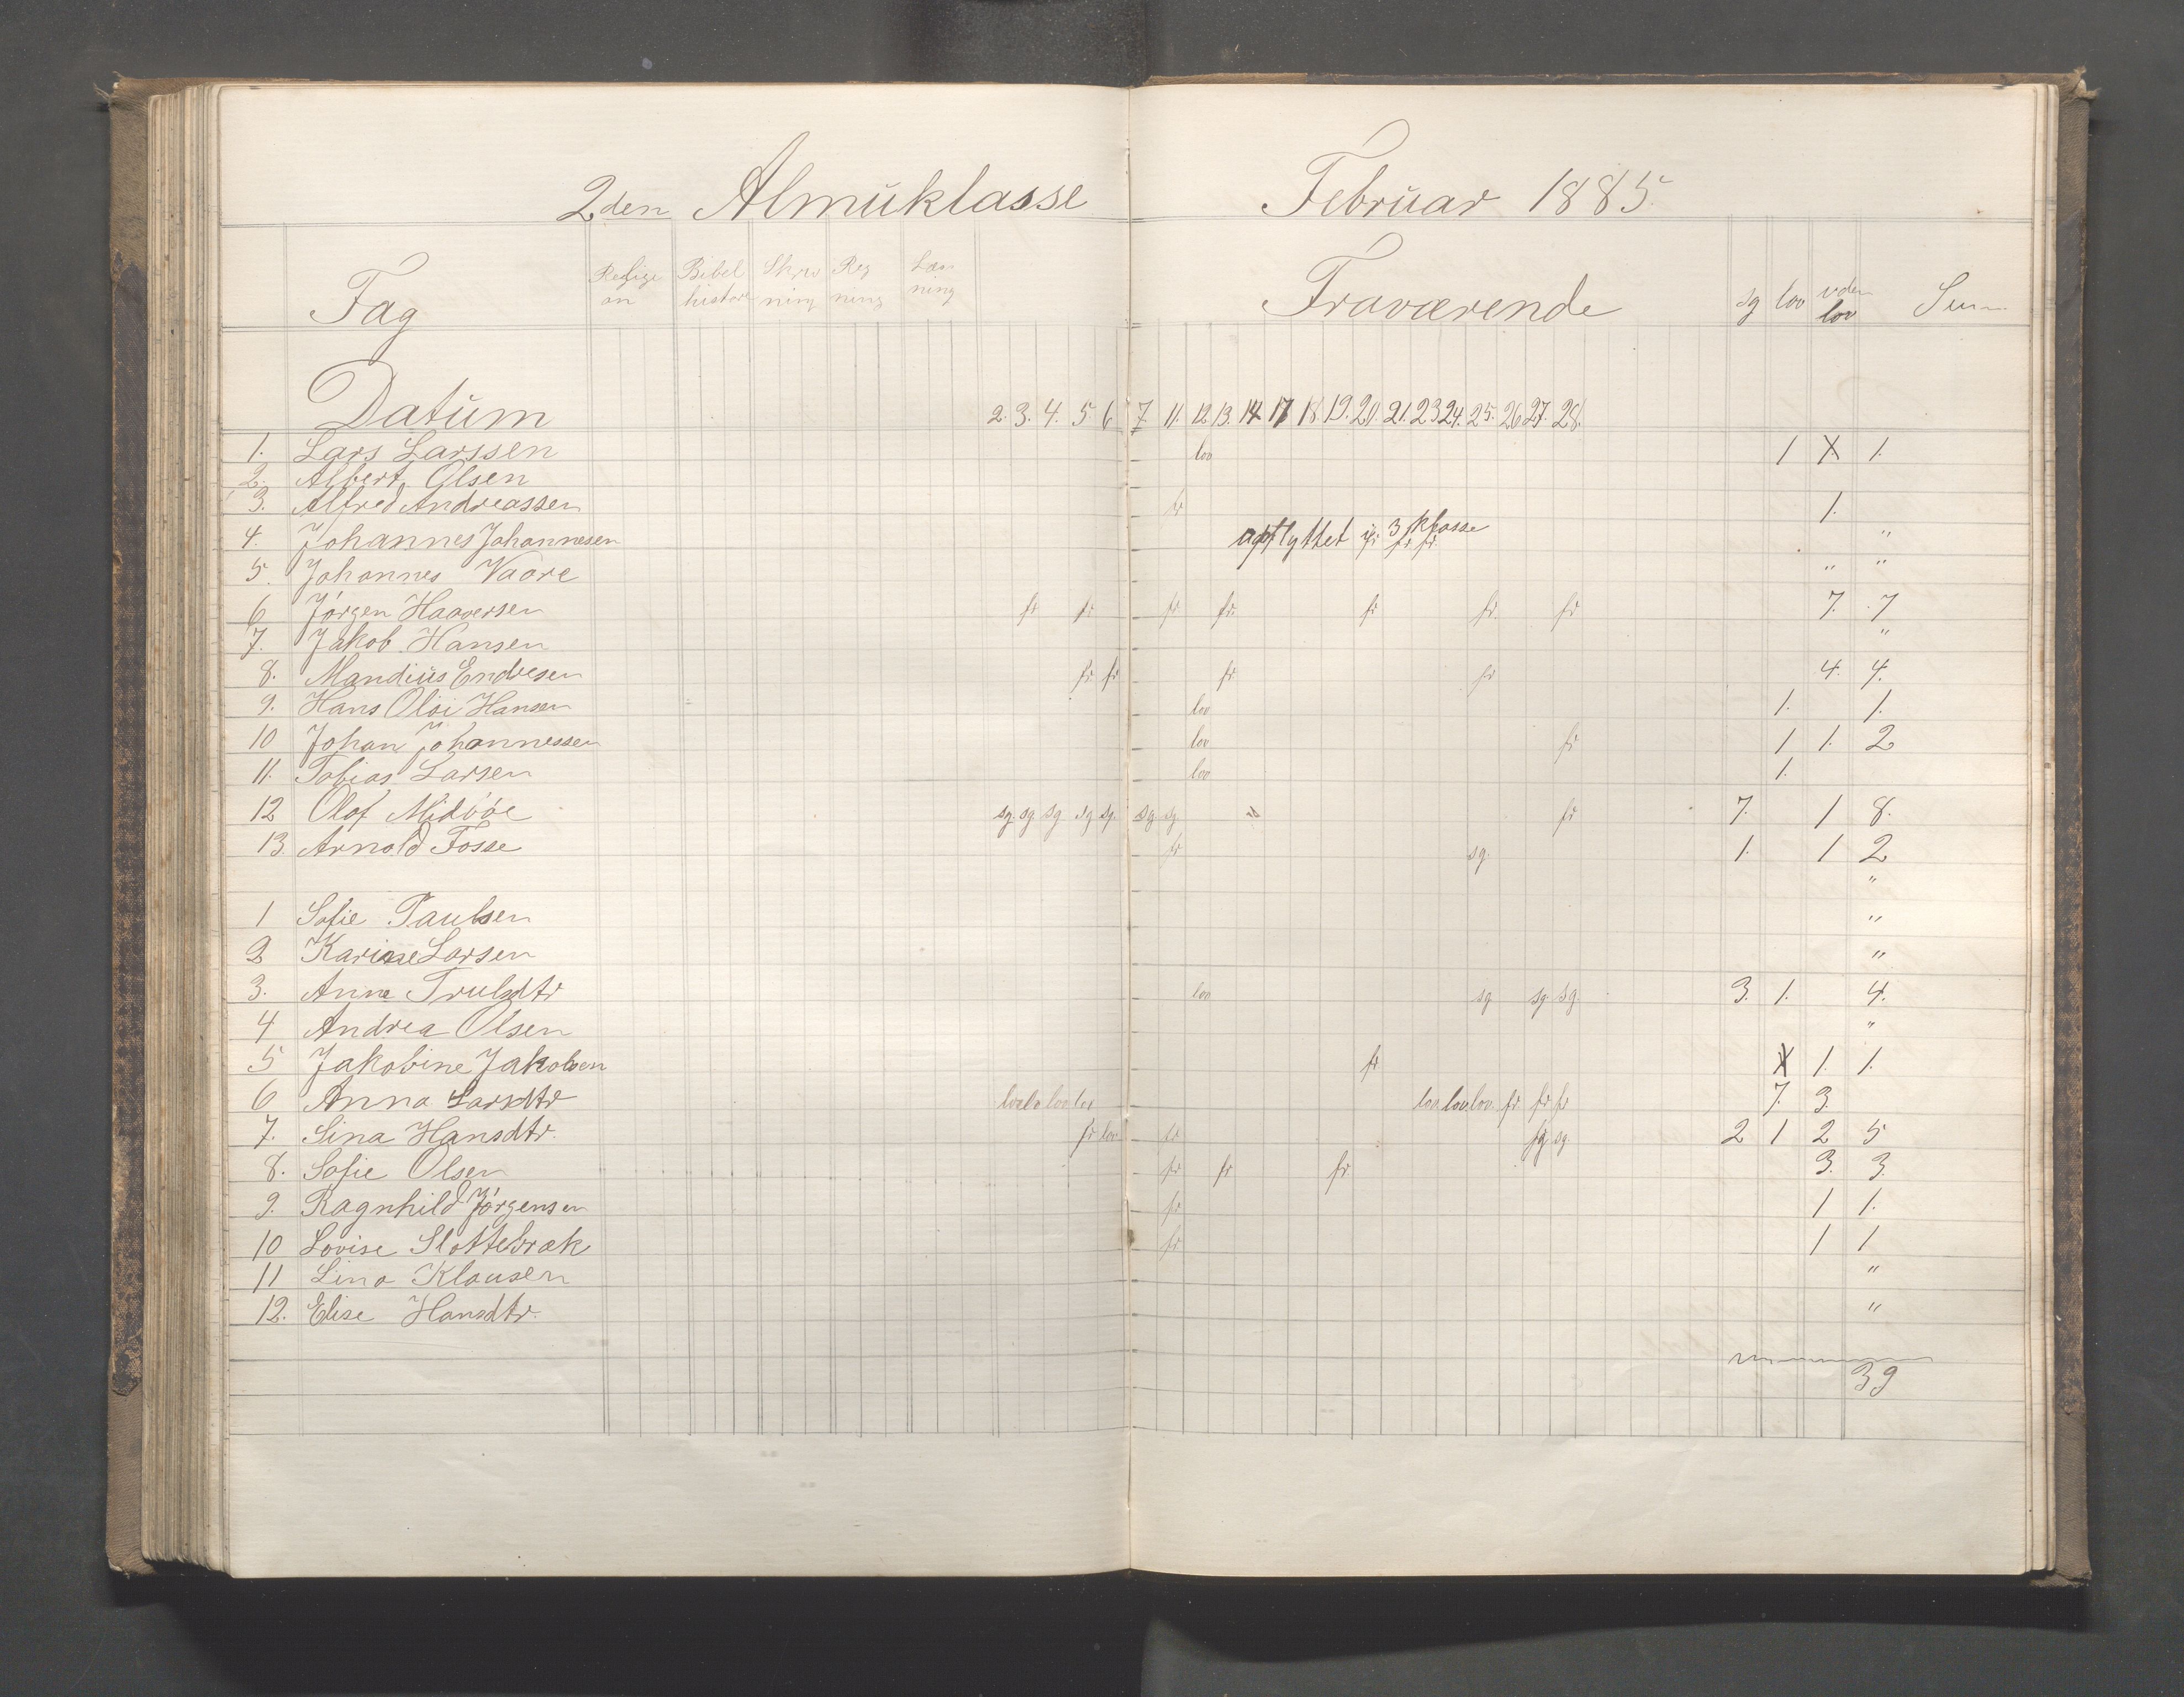 2den Almuklasse Februar 1885
Fag Religion Bibelhistore Skrivning Regning Læsning Fraværende sg lov uden lov Sum
Datum 2. 3. 4. 5 6 7. 11. 12 13. 14 17 18. 19. 20. 21. 23 24. 25. 26 27. 28.
1. Lars Larssen lov 1 X 1.
2. Albert Olsen
3. Alfred Andreassen fr 1.
4. Johannes Johannesen opflyttet i 3 klasse fr fr "
5. Johannes Vaare " "
6 Jörgen Haaversen fr fr fr fr. fr fr. fr 7. 7
7. Jakob Hansen "
8. Mandius Endresen fr fr fr fr 4. 4.
9. Hans Oloi Hansen lov 1. 1.
10 Johan Johannessen lov fr 1 1. 2
11. Tobias Larsen lov 1.
12 Olof Midböe sg. sg sg. sg sg. sg sg fr 7. 1 8.
13. Arnold Fosse fr sg. 1. 1 2
"
1 Sofie Paulsen "
2 Karine Larsen "
3. Anne Trulsdtr lov sg sg. sg. 3. 1. 4.
4 Andrea Olsen "
5 Jakobine Jakobsen fr X 1. 1.
6 Anna Larsdtr lov lov lov lov lov. lov. lov. fr fr fr 7. 3.
7. Sina Hansdtr. fr lov fr sg. sg. 2 1 2 5
8. Sofie Olsen fr fr fr. 3. 3.
9. Ragnhild Jörgensen fr 1 1.
10 Lovise Slottebrak fr 1 1
11 Lina Klausen "
12. Elise Hansdtr. "
39